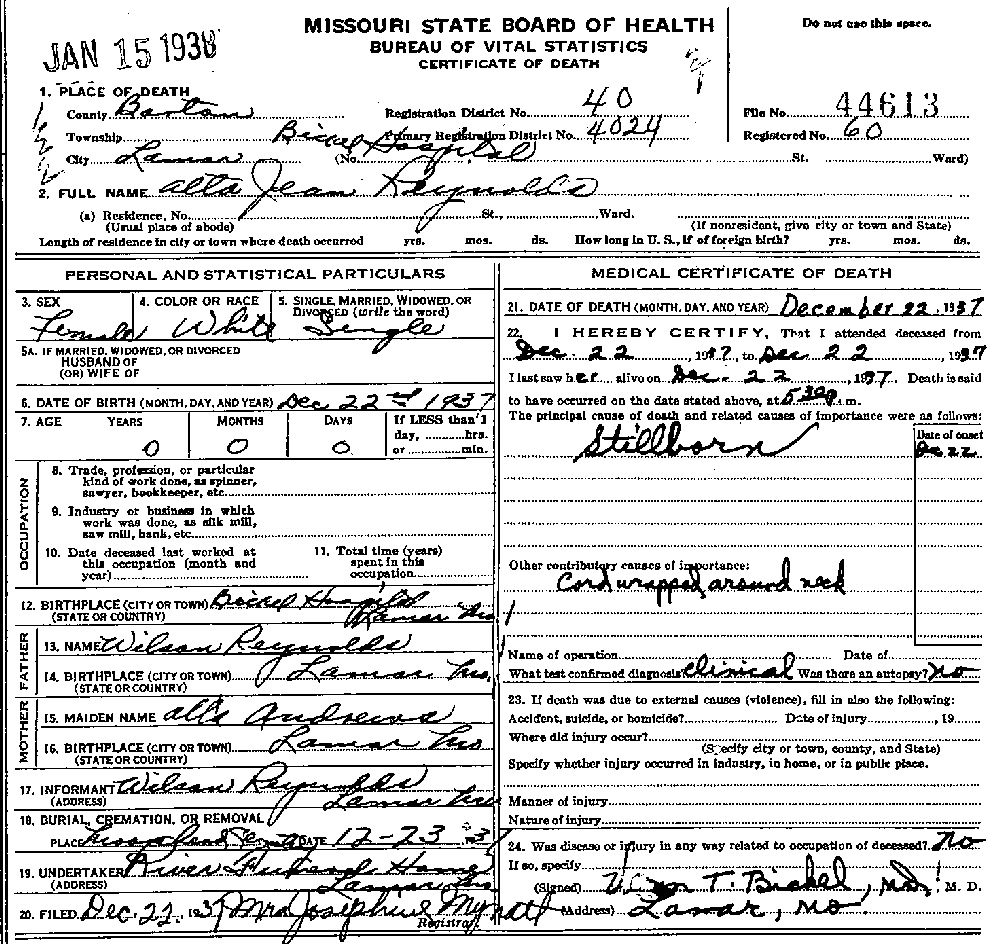 MISSOURI STATE BOARD OF HEALTH
BUREAU OF VITAL STATISTICS
CERTIFICATE OF DEATH
Do not use this space.
JAN 15 1938
1. PLACE OF DEATH
County Barton Registration District No. 40 File No. 44613
Township Primary Registration District No. 4024 Registered No. 60
City Lamar (No. Bickel Hospital St. Ward)
2. FULL NAME Alta Jean Reynolds
(a) Residence, No. St., Ward.
(Usual place of abode) (If nonresident, give city or town and State)
Length of residence in city or town where death occurred yrs. mos. ds. How long in U. S., if of foreign birth? yrs. mos. ds.
PERSONAL AND STATISTICAL PARTICULARS
3. SEX 4. COLOR OR RACE 5. SINGLE, MARRIED, WIDOWED, OR DIVORCED (write the word)
Female White Single
5A. IF MARRIED, WIDOWED, OR DIVORCED
HUSBAND OF
(OR) WIFE OF
6. DATE OF BIRTH (MONTH, DAY, AND YEAR) Dec 22nd 1937
7. AGE YEARS MONTHS DAYS If LESS than 1
day, hrs.
0 0 0 or min.
OCCUPATION
8. Trade, profession, or particular
kind of work done, as spinner,
sawyer, bookkeeper, etc.
9. Industry or business in which
work was done, as silk mill,
saw mill, bank, etc.
10. Date deceased last worked at
this occupation (month and
year)
11. Total time (years)
spent in this
occupation
12. BIRTHPLACE (CITY OR TOWN) Bickel Hospital
(STATE OR COUNTRY) Lamar Mo
FATHER
13. NAME Wilson Reynolds
14. BIRTHPLACE (CITY OR TOWN) Lamar Mo.
(STATE OR COUNTRY)
MOTHER
15. MAIDEN NAME Alta Andrews
16. BIRTHPLACE (CITY OR TOWN) Lamar Mo
(STATE OR COUNTRY)
17. INFORMANT Wilson Reynolds
(ADDRESS) Lamar Mo
18. BURIAL, CREMATION, OR REMOVAL
PLACE DATE 12-23 3
19. UNDERTAKER River Funeral Home
(ADDRESS) Lamar Mo.
20. FILED Dec. 22, 1937 Mrs Josephine
Registrar.
MEDICAL CERTIFICATE OF DEATH
21. DATE OF DEATH (MONTH, DAY, AND YEAR) December 22, 1937
22. I HEREBY CERTIFY, That I attended deceased from
Dec. 22, 1937, to Dec 22, 1937
I last saw her alive on Dec. 22, 1937. Death is said
to have occurred on the date stated above, at 5:30 p.m.
The principal cause of death and related causes of importance were as follows:
Date of onset
Stillborn Dec 22
Other contributory causes of importance:
Cord wrapped around neck
Name of operation Date of
What test confirmed diagnosis? Clinical Was there an autopsy? No
23. If death was due to external causes (violence), fill in also the following:
Accident, suicide, or homicide? Date of injury , 19
Where did injury occur?
(Specify city or town, county, and State)
Specify whether injury occurred in industry, in home, or in public place.
Manner of injury
Nature of injury
24. Was disease or injury in any way related to occupation of deceased? No
If so, specify
(Signed) T. Bickel, MD, M. D.
(Address) Lamar, Mo